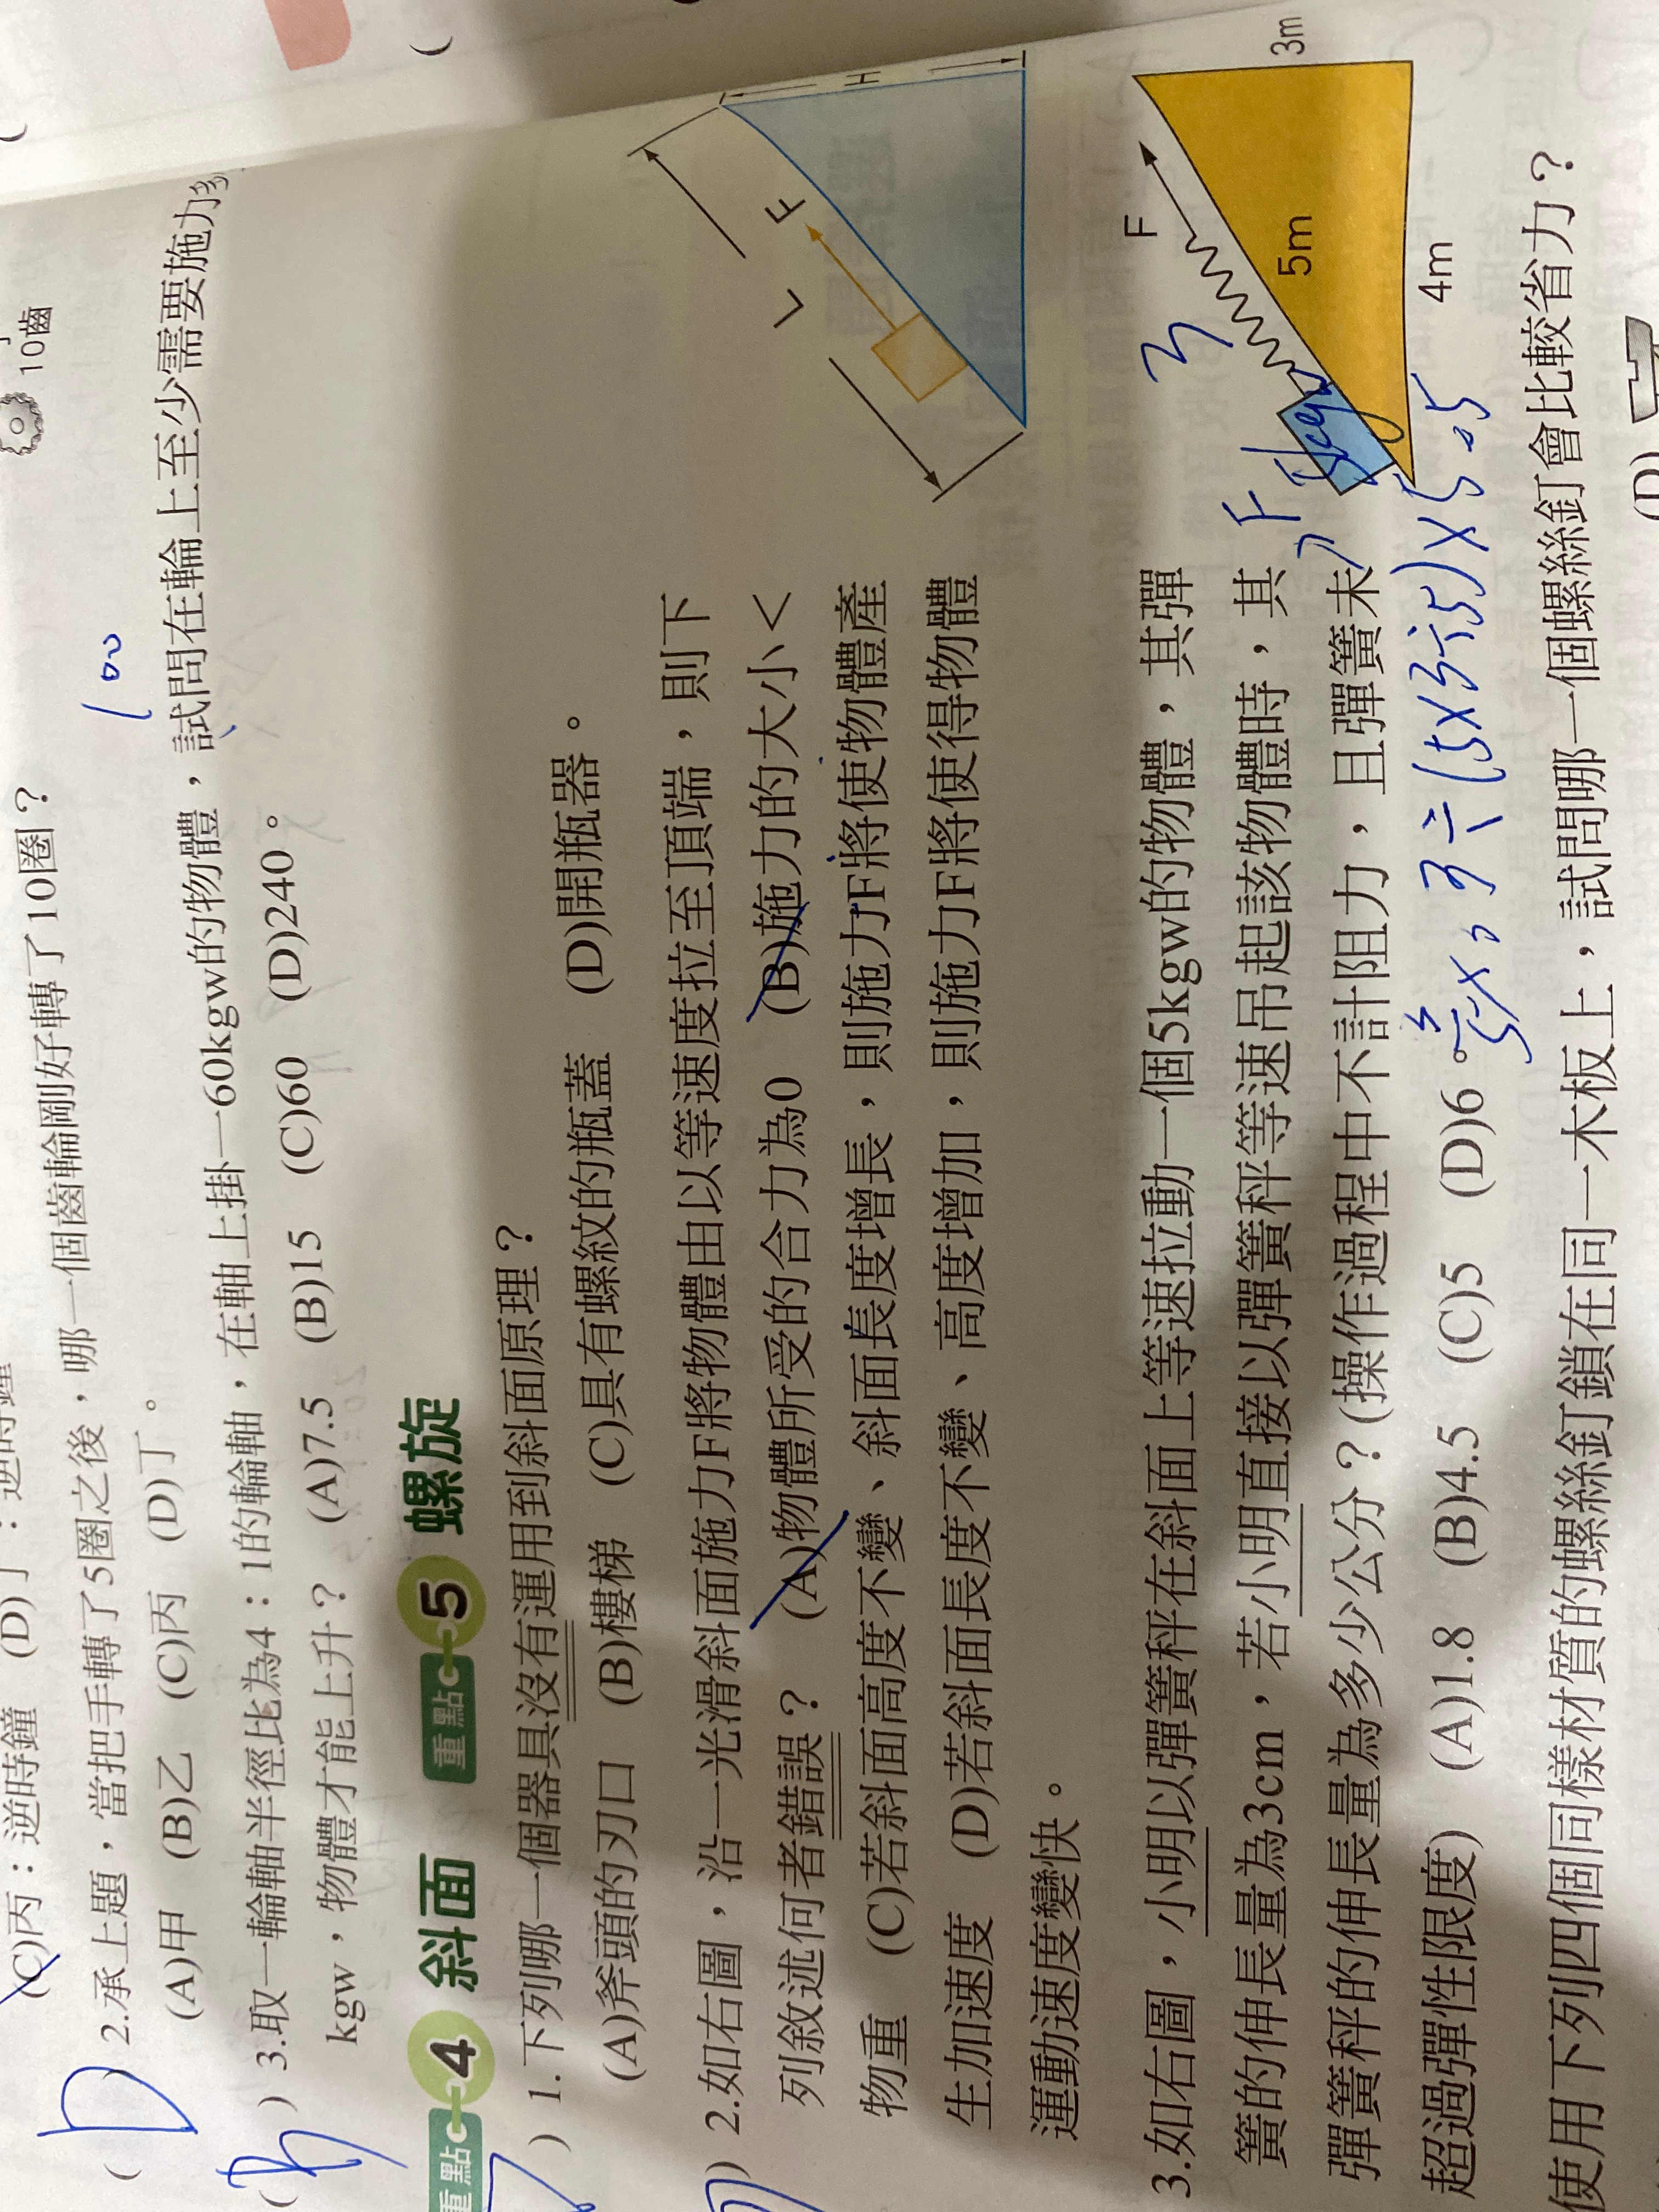 10齒
(C)丙：逆時鐘 (D)丁：逆時鐘
D
( ) 2.承上題，當把手轉了5圈之後，哪一個齒輪剛好轉了10圈？
(A)甲 (B)乙 (C)丙 (D)丁。
B
( ) 3.取一輪軸半徑比為4：1的輪軸，在軸上掛一60kgw的物體，試問在輪上至少需要施力多
kgw，物體才能上升？ (A)7.5 (B)15 (C)60 (D)240。
重點 4 斜面 重點 5 螺旋
) 1.下列哪一個器具沒有運用到斜面原理？
(A)斧頭的刃口 (B)樓梯 (C)具有螺紋的瓶蓋 (D)開瓶器。
) 2.如右圖，沿一光滑斜面施力F將物體由以等速度拉至頂端，則下
列敘述何者錯誤？ (A)物體所受的合力為0 (B)施力的大小＜
物重 (C)若斜面高度不變、斜面長度增長，則施力F將使物體產
生加速度 (D)若斜面長度不變、高度增加，則施力F將使得物體
運動速度變快。
L
F
H
3.如右圖，小明以彈簧秤在斜面上等速拉動一個5kgw的物體，其彈
簧的伸長量為3cm，若小明直接以彈簧秤等速吊起該物體時，其
彈簧秤的伸長量為多少公分？(操作過程中不計阻力，且彈簧未
超過彈性限度) (A)1.8 (B)4.5 (C)5 (D)6。
F
3
F
5m
3m
4m
3÷(5×3÷5)×5=5
使用下列四個同樣材質的螺絲釘鎖在同一木板上，試問哪一個螺絲釘會比較省力？
(D)